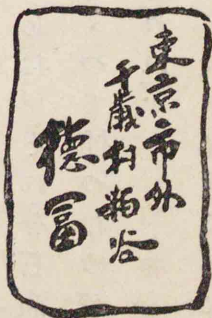 東京市外
千歳村粕谷
徳冨